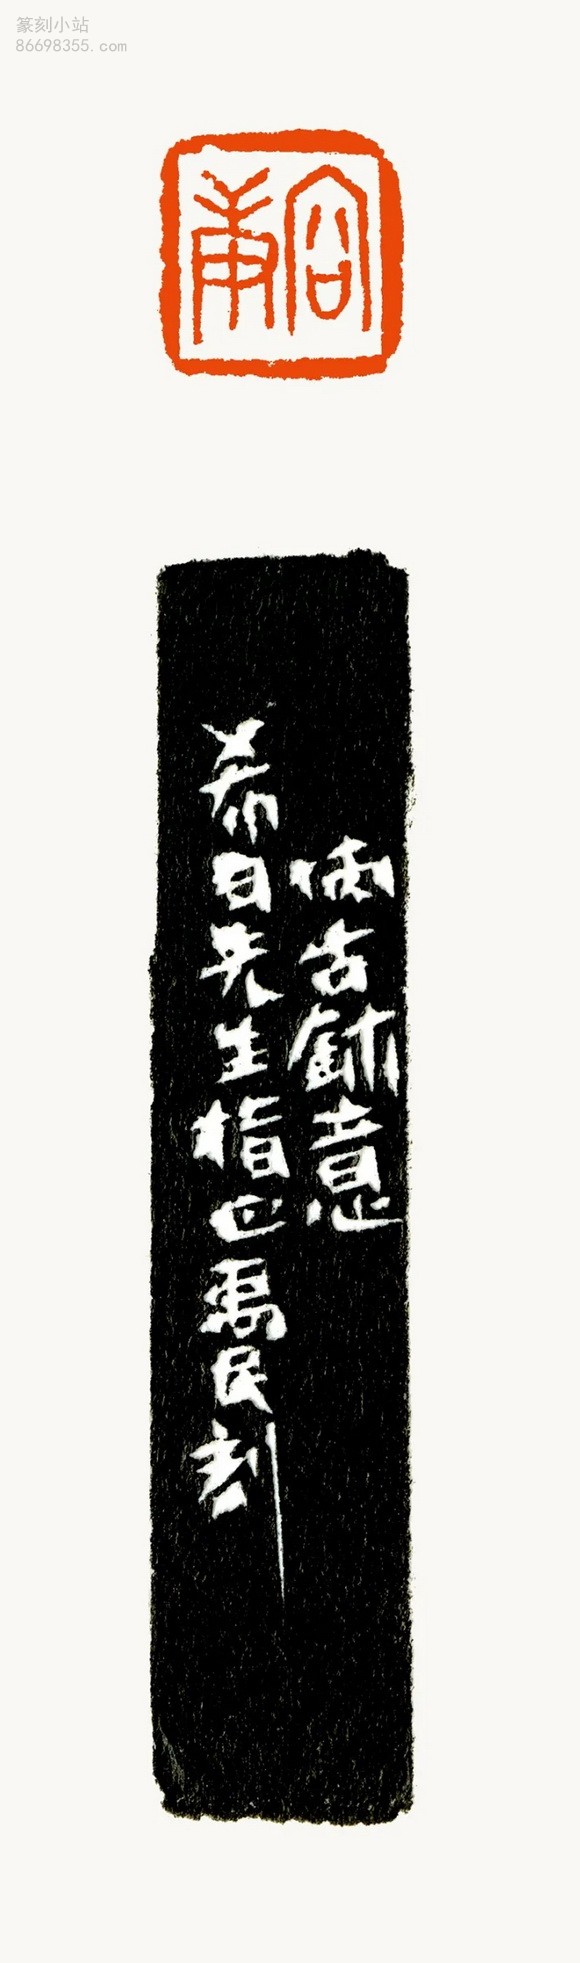 篆刻小站
86698355.com
容甫
仿古鉨意
希白先生指正禹民刻